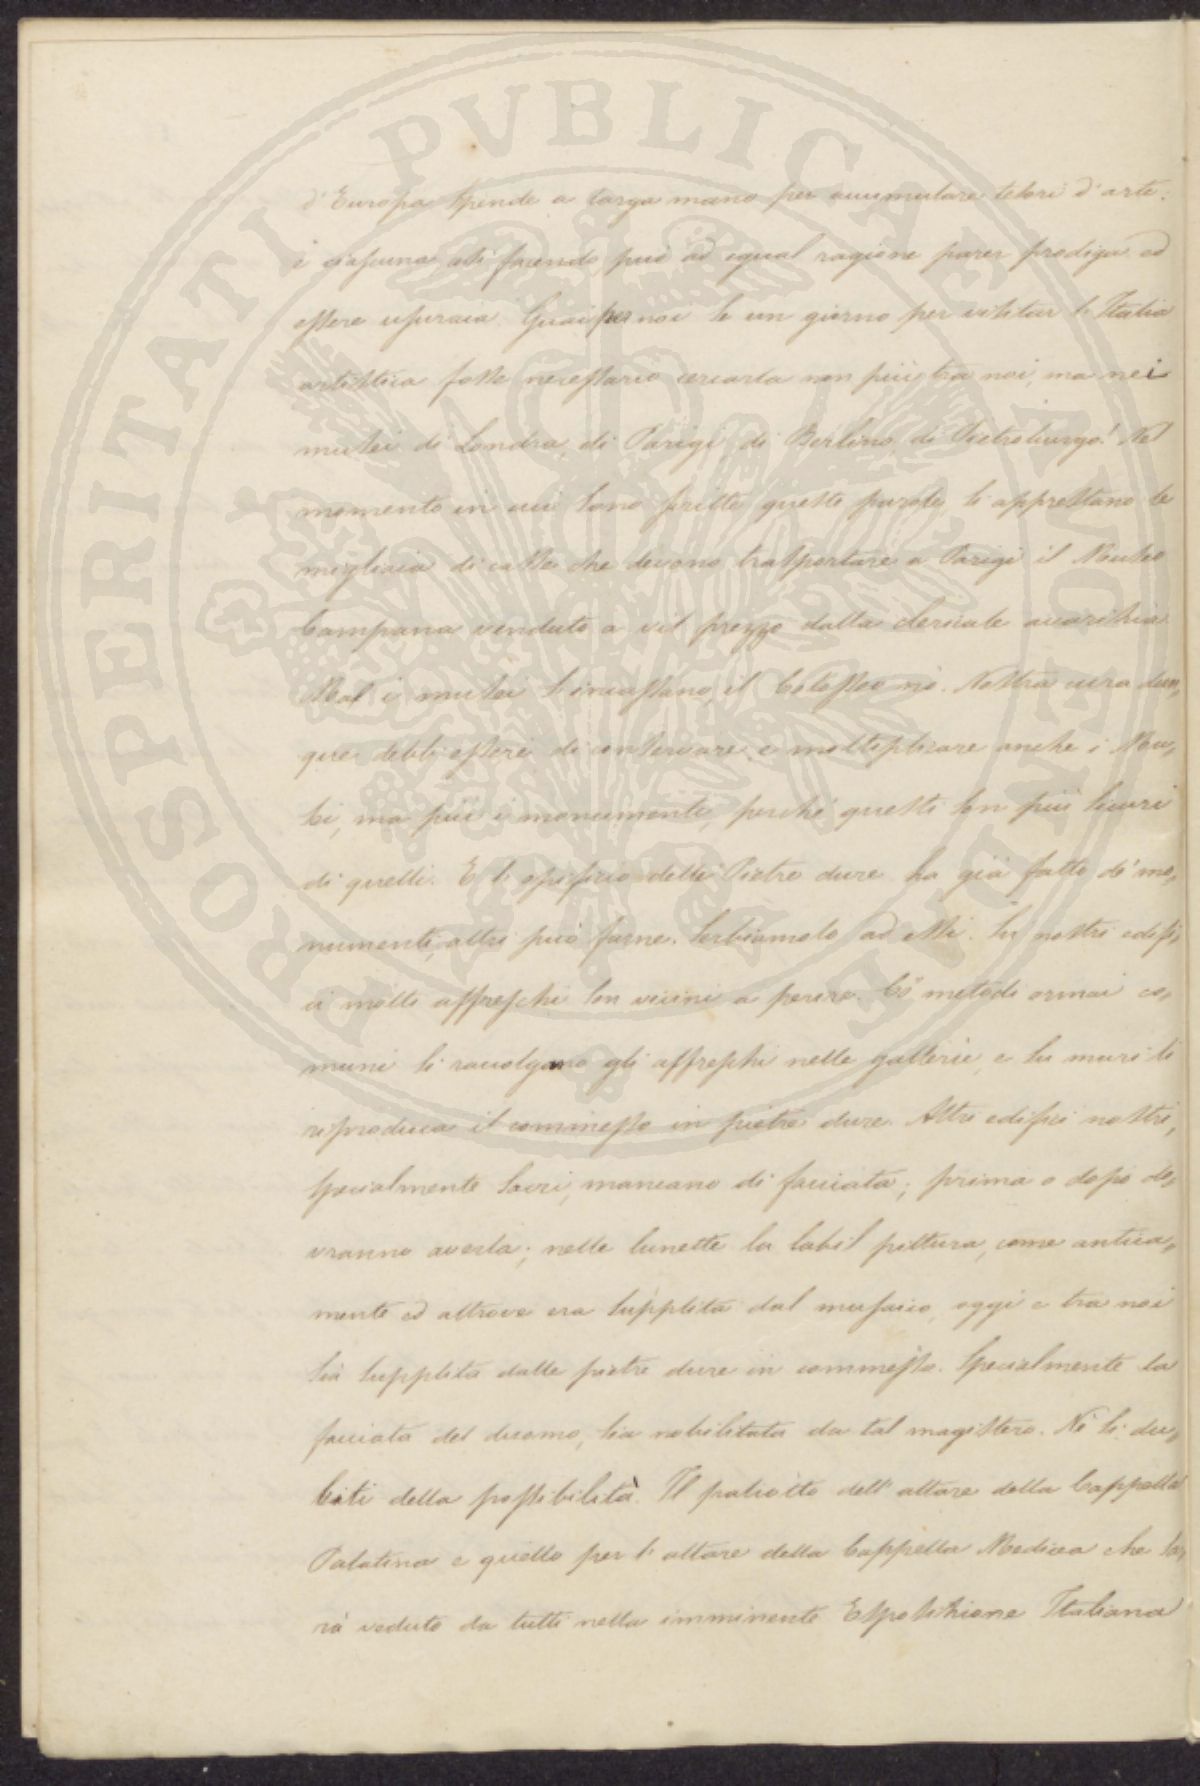 PROSPERITATI PVBLICAE AVGENDAE
d'Europa spende a larga mano per accumulare tesori d'arte:
e ciascuna, così facendo, può ad egual ragione parer prodiga ed
essere usuraia. Guai per noi se un giorno per visitar l'Italia
artistica fosse necessario cercarla non più tra noi, ma nei
musei di Londra, di Parigi, di Berlino, di Pietroburgo! Nel
momento in cui sono scritte queste parole, si apprestano le
migliaia di casse che devono trasportare a Parigi il Museo
Campana venduto a vil prezzo dalla clericale avarizia.
Mal i musei s'incassano, il Colosseo no. Nostra cura dun„
que debb'essere di conservare e moltiplicare anche i Mu„
sei, ma più i monumenti, perchè questi son più sicuri
di quelli. E l'opificio delle Pietre dure ha già fatto de' mo„
numenti, altri può farne. Serbiamolo ad essi. Su nostri edifi„
ci molti affreschi son vicini a perire. Co' metodi ormai co„
muni si raccolgano gli affreschi nelle gallerie, e su muri li
riproduca il commesso in pietre dure. Altri edifici nostri,
specialmente sacri, mancano di facciata; prima o dopo do„
vranno averla; nelle lunette la labil pittura, come antica„
mente ed altrove era supplita dal musaico, oggi e tra noi
sia supplita dalle pietre dure in commesso. Specialmente la
facciata del duomo, sia nobilitata da tal magistero. Nè si du„
biti della possibilità. Il paliotto dell'altare della Cappella
Palatina e quello per l'altare della Cappella Medicea che sa„
rà veduto da tutti nella imminente Esposizione Italiana